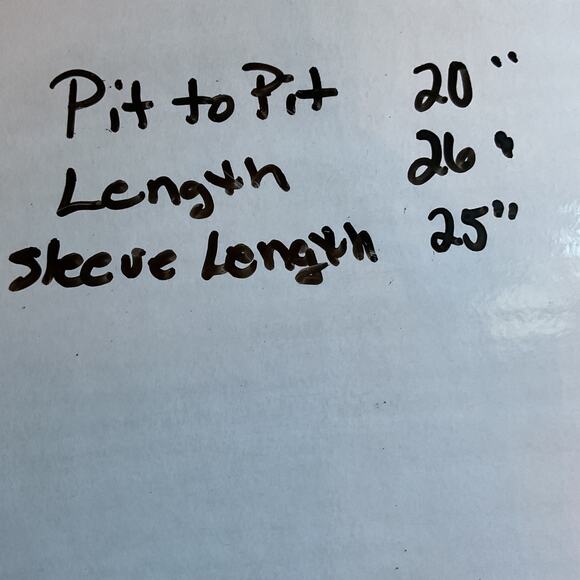 Pit to Pit 20"
Length 26"
Sleeve Length 25"